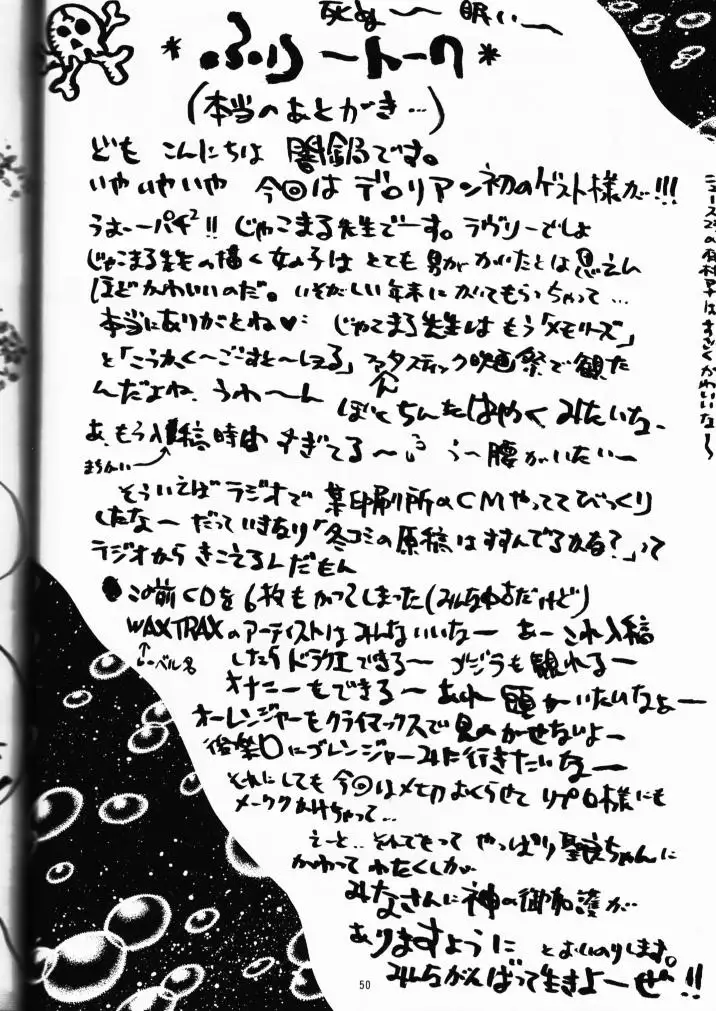 死ぬ〜 眠い〜
*ふりートーク*
(本当のあとがき…)
ども こんにちは 闇鍋です。
いやいやいや 今回は デロリアン初のゲスト様が!!!
うおーーパチ²!! じゃこまる先生でーす。ラヴリーでしょ
じゃこまる先生の描く女の子は とても 男が かいたとは思えん
ほど かわいいのだ。いそがしい年末に かいてもらっちゃって…
本当にありがとね♥ じゃこまる先生は もう「メモリーズ」
と「こうかく〜ごーすと〜しぇる」ファンタスティック映画祭で観た
んだよね、うわ〜ん ぼくちんたはやく みたいな〜
あ、もう入稿時は すぎてる〜 う〜腰がいたい〜
そういえば ラジオで 某印刷所のCMやっててびっくり
したなー だっていきなり「冬コミの原稿はすすんでるかね?」って
ラジオから きこえるんだもん
この前 CDを 6枚も かってしまった(みんな中古だけど)
WAX TRAXのアーティストは みんないいなー あー これ入稿
レーベル名
したら ドラクエできる〜 ゴジラも観れる〜
オナニーもできる〜 あれ 頭がいたいなぁー
オーレンジャーもクライマックスで 見のがせないよー
後楽園にゴレンジャーみに行きたいなー
それにしても 今回はメイワクおくらせて リプロ様にも
メーワクかけちゃって…
えーと…そんでもって やっぱり 聖ちゃんに
かわって わたくしが
みなさんに神の御加護が
ありますように とおいのりします。
みんながんばって生きよーぜ!!
50